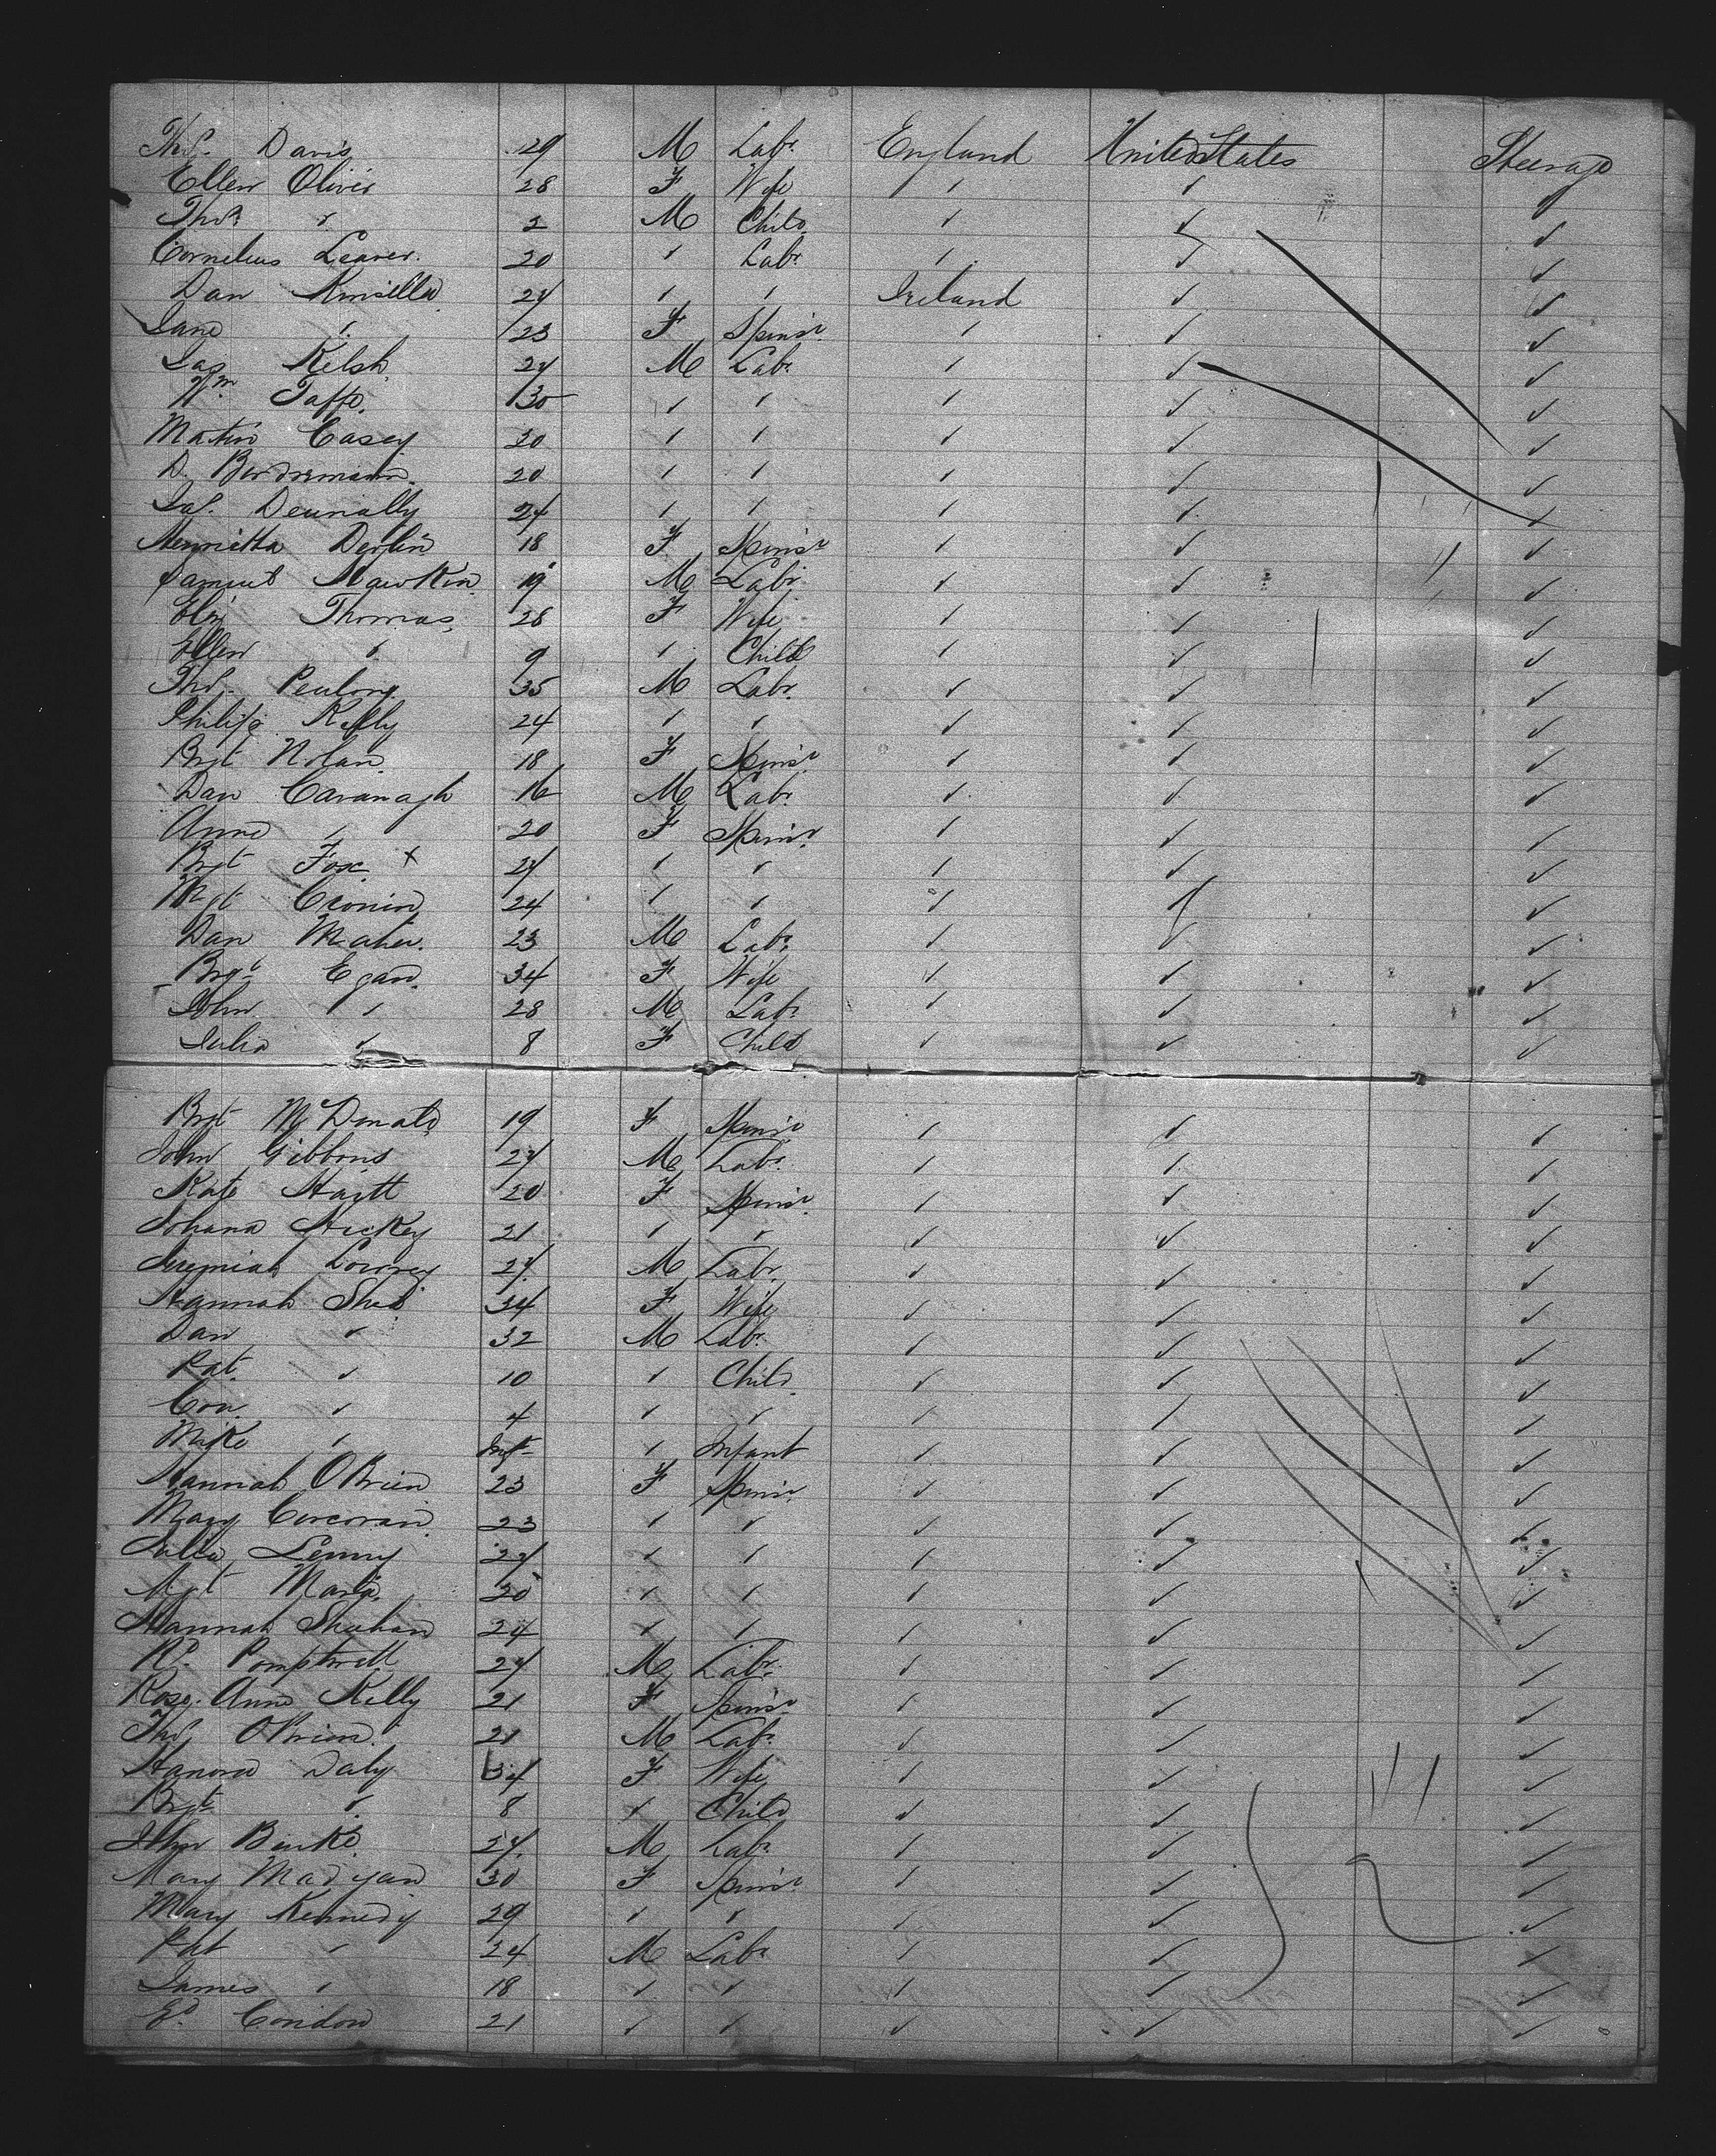 Thos. Davis 29 M Labr. England United States Steerage
Ellen Oliver 28 F Wife ✓ ✓ ✓
Thos. ✓ 2 M Child ✓ ✓ ✓
Cornelius Leaver. 20 ✓ Labr. ✓ ✓ ✓
Dan Kinsella 24 ✓ ✓ Ireland ✓ ✓
Jane ✓ 23 F Spinsr. ✓ ✓ ✓
Jas Kelsh 24 M Labr. ✓ ✓ ✓
Wm. Taffe. 30 ✓ ✓ ✓ ✓ ✓
Martin Casey 30 ✓ ✓ ✓ ✓ ✓
D. 20 ✓ ✓ ✓ ✓ ✓
Jas. Dennally 24 ✓ ✓ ✓ ✓ ✓
Henrietta Devlin 18 F Spinsr ✓ ✓ ✓
Samuel Hawkin 19 M Labr. ✓ ✓ ✓
Eliz Thomas 28 F Wife ✓ ✓ ✓
Ellen ✓ 9 ✓ Child ✓ ✓ ✓
Thos. 35 M Labr. ✓ ✓ ✓
Philip Kelly 24 ✓ ✓ ✓ ✓ ✓
Brgt Nolan 18 F Spinsr. ✓ ✓ ✓
Dan Cavanagh 16 M Labr. ✓ ✓ ✓
Anne ✓ 20 F Spinsr. ✓ ✓ ✓
Brgt Fox + 24 ✓ ✓ ✓ ✓ ✓
Mgt Cronin 24 ✓ ✓ ✓ ✓ ✓
Dan Maher. 23 M Labr. ✓ ✓ ✓
Brgt Egan. 34 F Wife ✓ ✓ ✓
John ✓ 28 M Labr. ✓ ✓ ✓
Julia ✓ 8 F Child ✓ ✓ ✓
Brgt McDonald 19 F Spinsr ✓ ✓ ✓
John Gibbons 24 M Labr. ✓ ✓ ✓
Kate 20 F Spinsr. ✓ ✓ ✓
Johana Hickey 21 ✓ ✓ ✓ ✓ ✓
Jeremiah Lowrey 24 M Labr. ✓ ✓ ✓
Hannah Shea 34 F Wife ✓ ✓ ✓
Dan ✓ 32 M Labr. ✓ ✓ ✓
Pat. ✓ 10 ✓ Child. ✓ ✓ ✓
Con ✓ 4 ✓ ✓ ✓ ✓ ✓
Mike ✓ Inft ✓ Infant ✓ ✓ ✓
Hannah OBrien 23 F Spinsr. ✓ ✓ ✓
Mary Corcoran 23 ✓ ✓ ✓ ✓ ✓
Julia Lenny 24 ✓ ✓ ✓ ✓ ✓
Mgt 20 ✓ ✓ ✓ ✓ ✓
Hannah Shahan 24 ✓ ✓ ✓ ✓ ✓
Rd. 24 M Labr. ✓ ✓ ✓
Rose Anne Kelly 21 F Spinsr. ✓ ✓ ✓
Thos OBrien. 21 M Labr. ✓ ✓ ✓
Hanora Daly 34 F Wife ✓ ✓ ✓
Brgt ✓ 8 ✓ Child ✓ ✓ ✓
John Burke. 24. M Labr. ✓ ✓ ✓
Mary Madigan 30 F Spinsr. ✓ ✓ ✓
Mary Kennedy 29 ✓ ✓ ✓ ✓ ✓
Pat ✓ 24 M Labr ✓ ✓ ✓
James ✓ 18 ✓ ✓ ✓ ✓ ✓
Ed. Condon 21 ✓ ✓ ✓ ✓ ✓